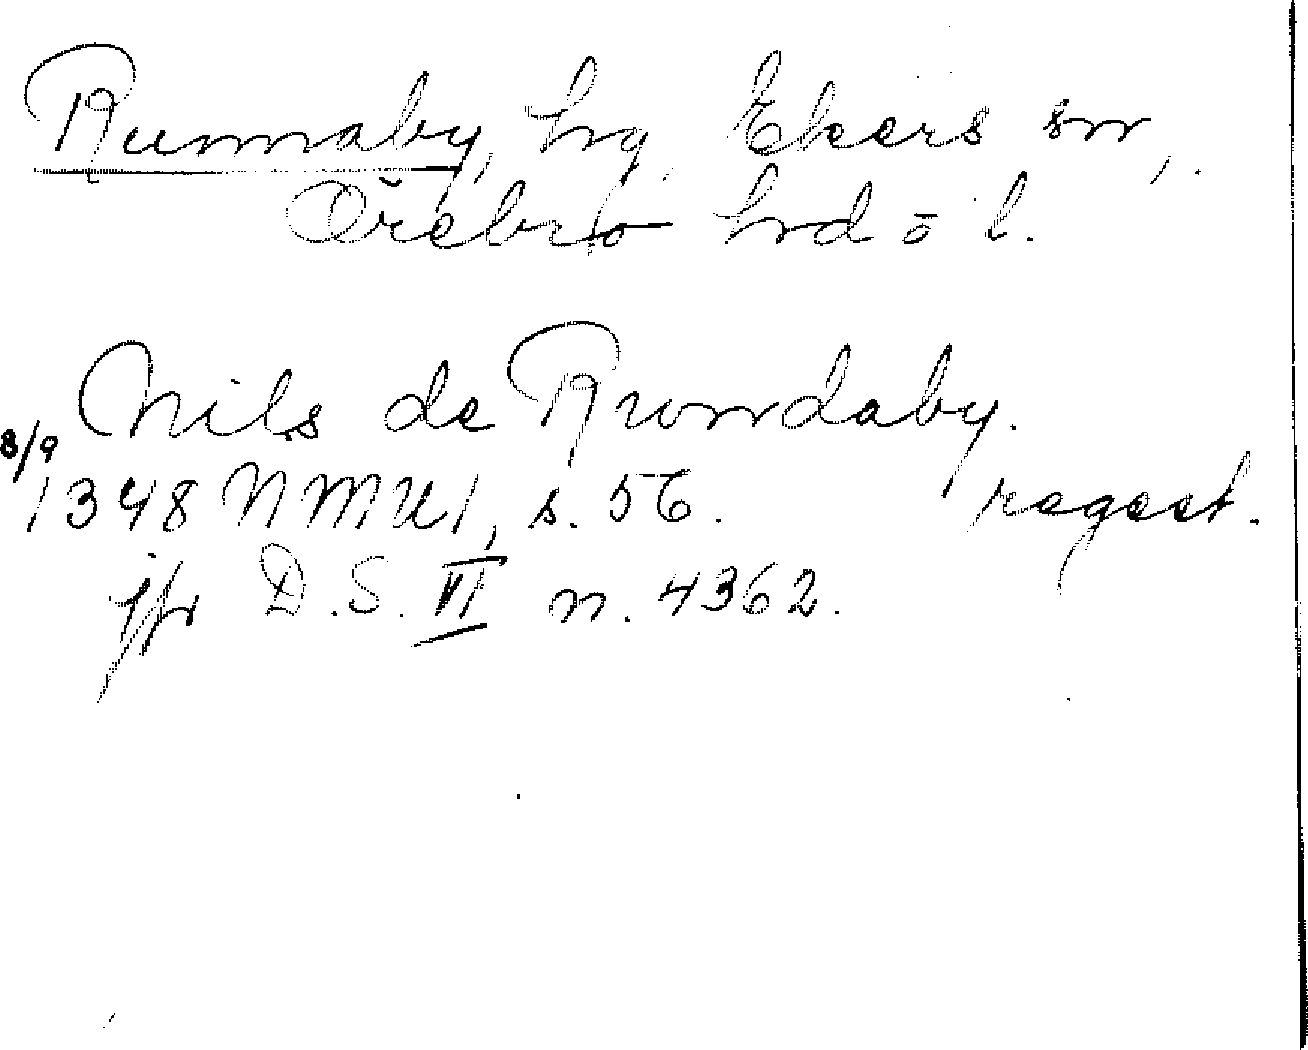 Runnaby, hg. Ekers sn,
Örebro hrd o l.
Nils de Rwndaby.
8/9
1348 NMU 1, s. 56. regest.
jfr D.S. VI n. 4362.